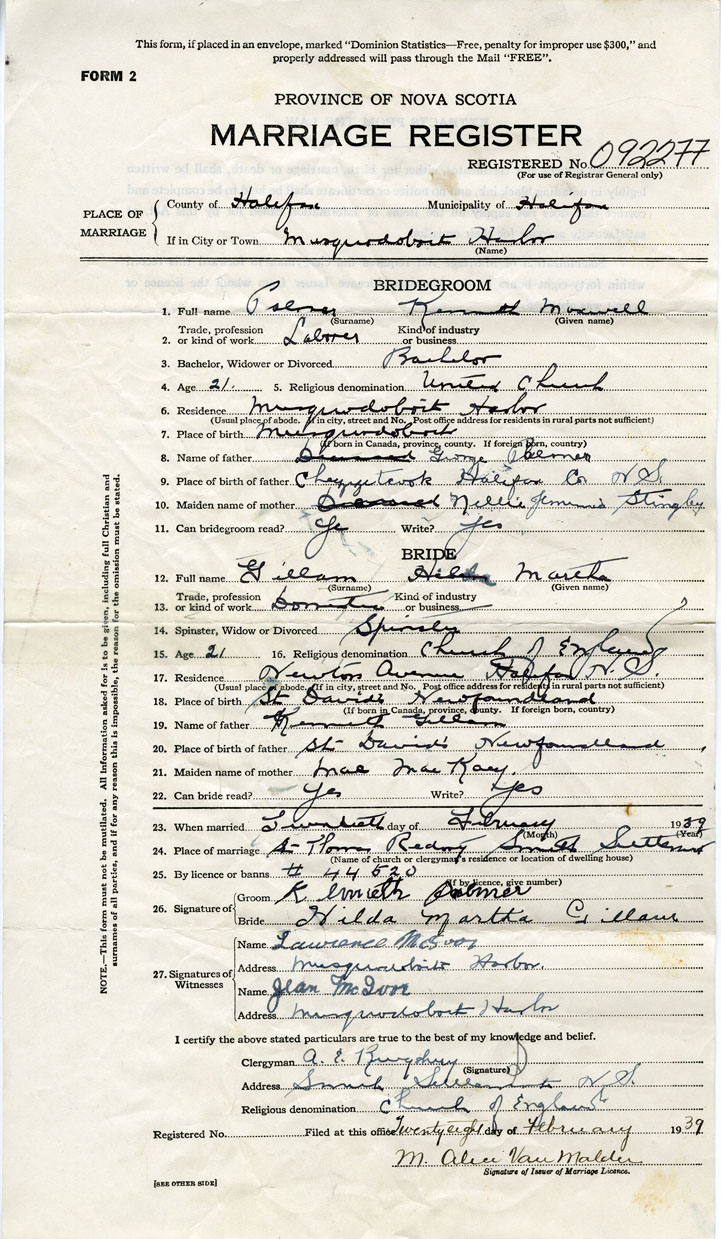 This form, if placed in an envelope, marked "Dominion Statistics—Free, penalty for improper use $300," and
properly addressed will pass through the Mail "FREE".
FORM 2
PROVINCE OF NOVA SCOTIA
MARRIAGE REGISTER
REGISTERED No. 092277
(For use of Registrar General only)
PLACE OF MARRIAGE
County of Halifax Municipality of Halifax
If in City or Town Musquodoboit Harbor
(Name)
BRIDEGROOM
1. Full name Palmer Kenneth Maxwell
(Surname) (Given name)
2. Trade, profession or kind of work Laborer Kind of industry or business
3. Bachelor, Widower or Divorced Bachelor
4. Age 21 5. Religious denomination United Church
6. Residence Musquodoboit Harbor
(Usual place of abode. If in city, street and No. Post office address for residents in rural parts not sufficient)
7. Place of birth Musquodoboit
(If born in Canada, province, county. If foreign born, country)
8. Name of father Deceased George Palmer
9. Place of birth of father Chezzetcook Halifax Co. N.S.
10. Maiden name of mother Deceased Nellie Jemima
11. Can bridegroom read? Yes Write? Yes
BRIDE
12. Full name Gillam Hilda Martha
(Surname) (Given name)
13. Trade, profession or kind of work Domestic Kind of industry or business
14. Spinster, Widow or Divorced Spinster
15. Age 21 16. Religious denomination Church of England
17. Residence Newton Avenue Halifax N.S.
(Usual place of abode. If in city, street and No. Post office address for residents in rural parts not sufficient)
18. Place of birth St Davids Newfoundland
(If born in Canada, province, county. If foreign born, country)
19. Name of father Kenneth Gillam
20. Place of birth of father St David's Newfoundland
21. Maiden name of mother Mae MacKay
22. Can bride read? Yes Write? Yes
23. When married Twentieth day of February 1939
(Month) (Year)
24. Place of marriage St Thomas Smith Settlement
(Name of church or clergyman's residence or location of dwelling house)
25. By licence or banns # 44520
(If by licence, give number)
26. Signature of
Groom Kenneth Palmer
Bride Hilda Martha Gillam
27. Signatures of Witnesses
Name Lawrence McIvor
Address Musquodoboit Harbor.
Name Jean McIvor
Address Musquodoboit Harbor
I certify the above stated particulars are true to the best of my knowledge and belief.
Clergyman A. E.
(Signature)
Address Smith Settlement N.S.
Religious denomination Church of England
Registered No. Filed at this office Twenty eight day of February 1939
M. Alice Van Malder
Signature of Issuer of Marriage Licence.
[SEE OTHER SIDE]
NOTE.—This form must not be mutilated. All information asked for is to be given, including full Christian and
surnames of all parties, and if for any reason this is impossible, the reason for the omission must be stated.